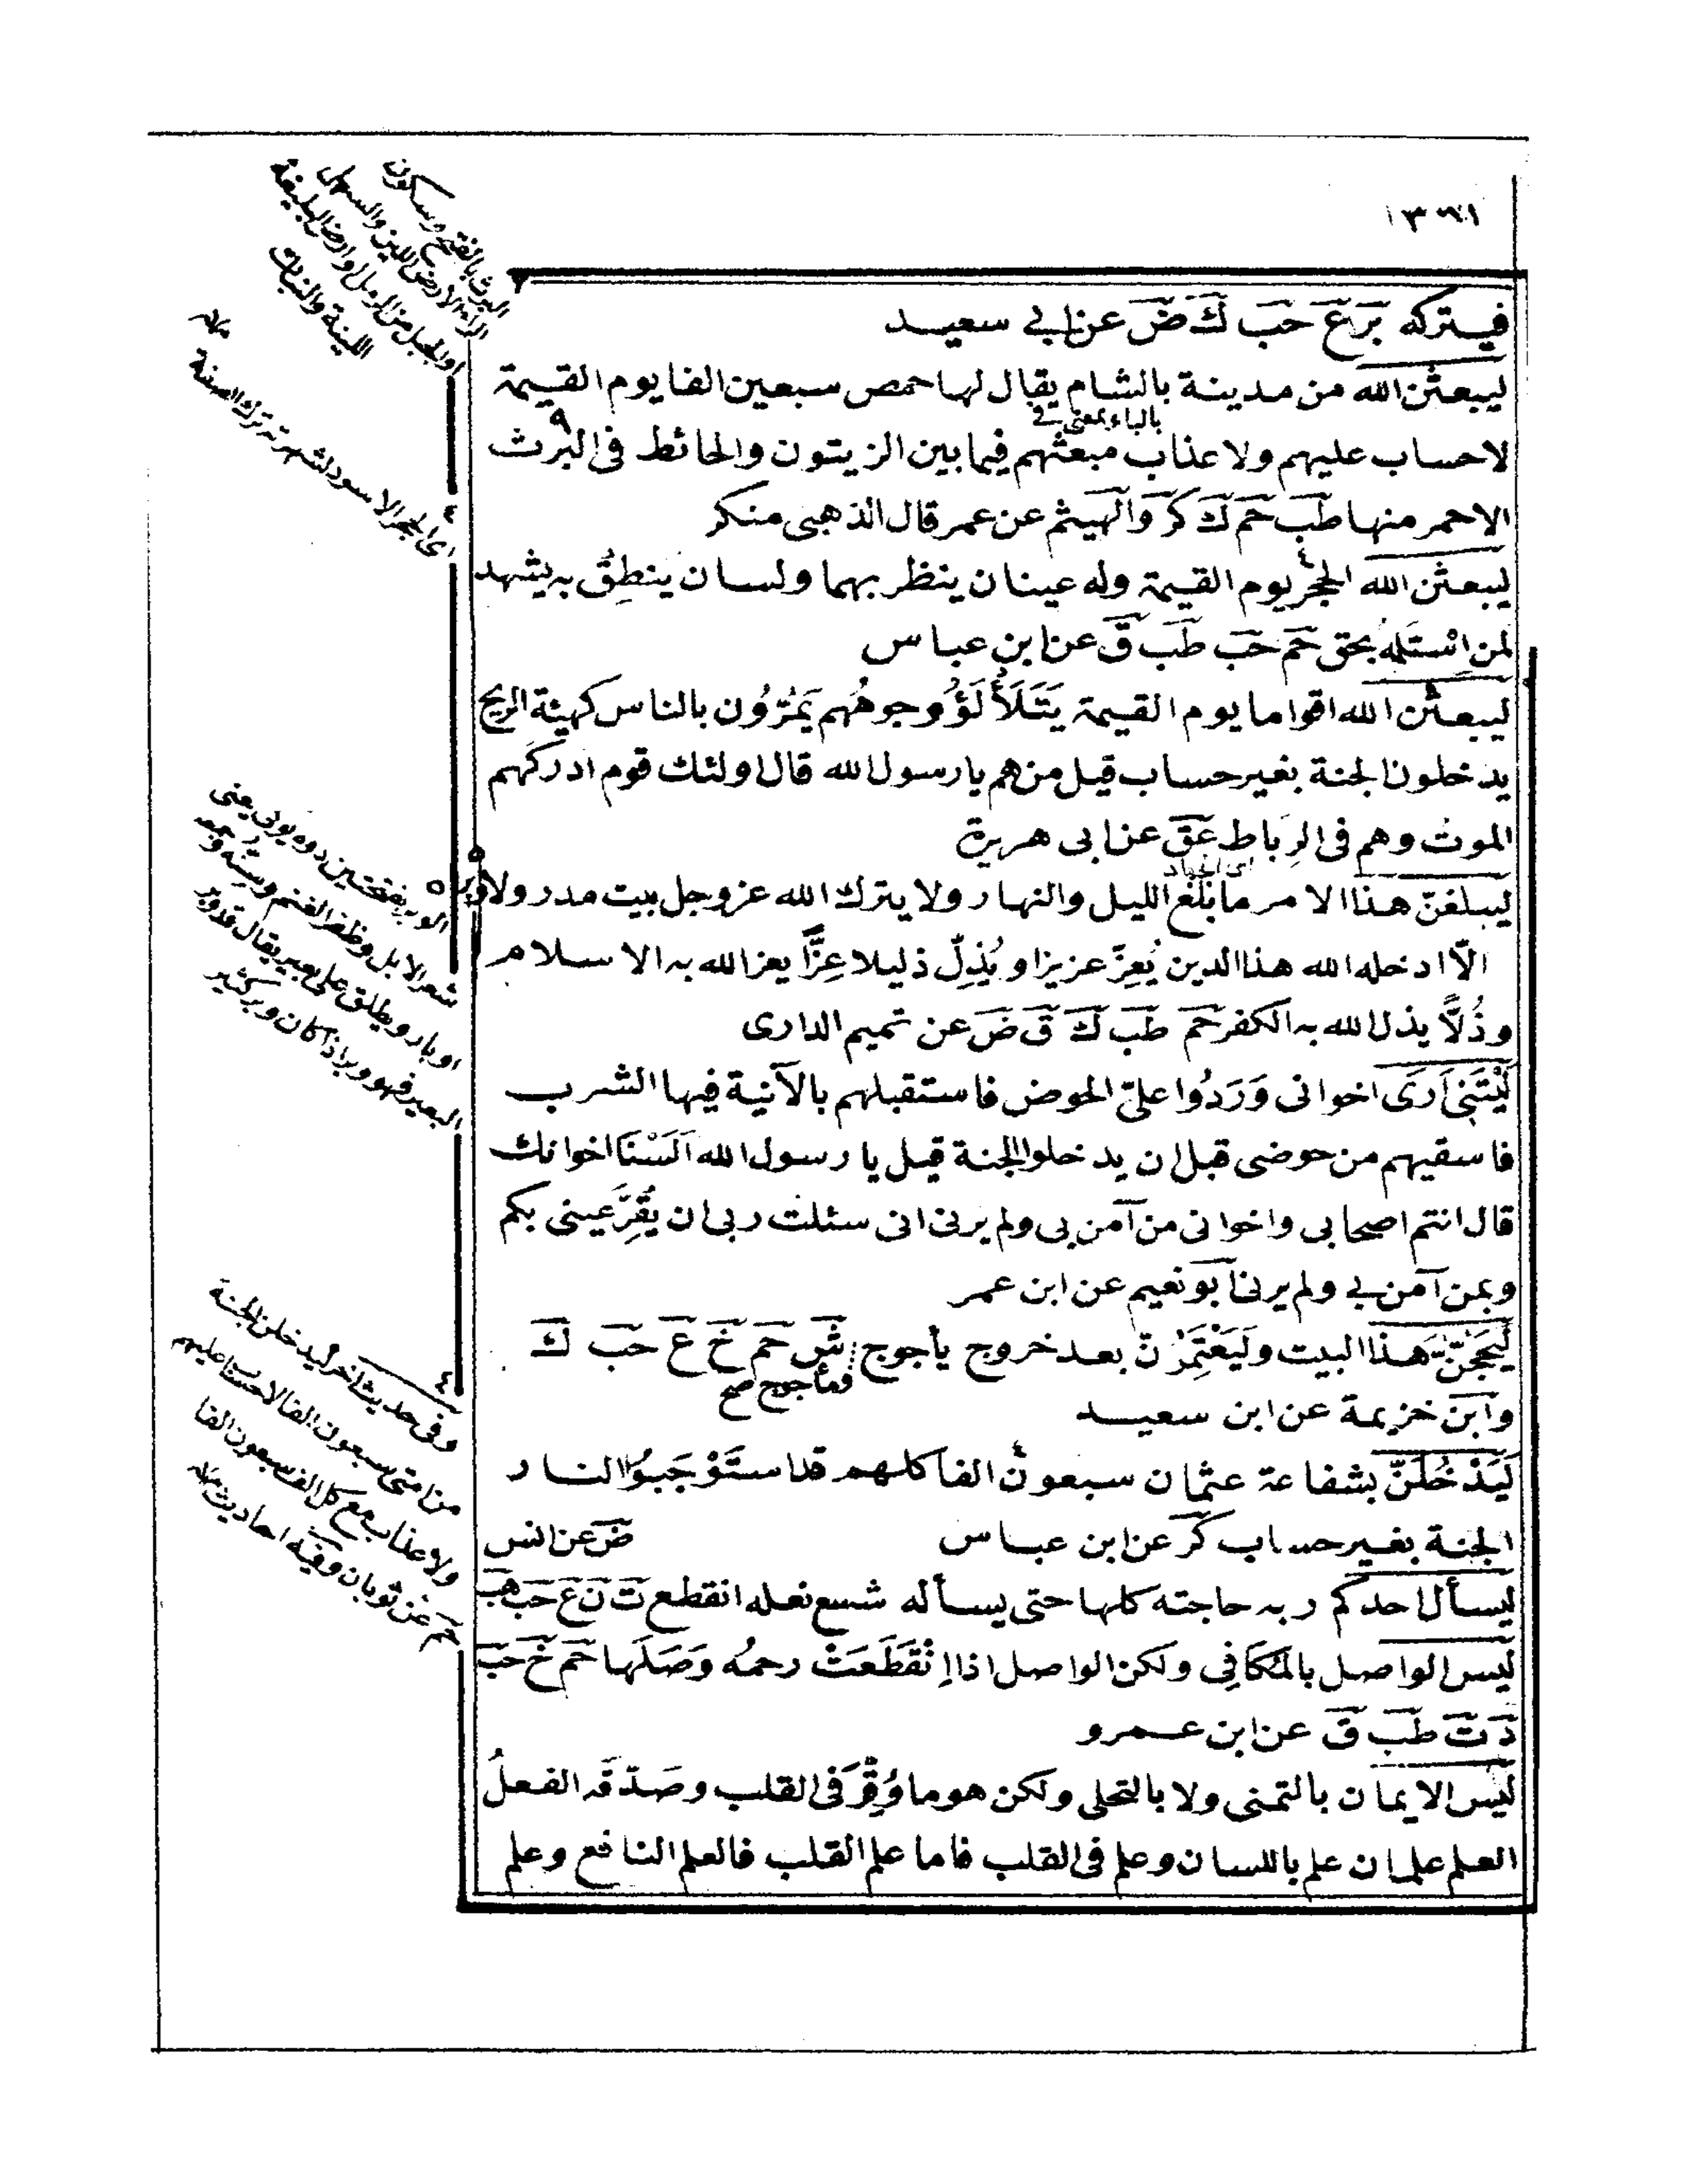 ٣٦١
فيتركه بز ع حب ك ض عن ابي سعيد
ليبعثن الله من مدينة بالشام يقال لها حمص سبعين الفا يوم القيمة
بالباء بمعنى في
لا حساب عليهم ولا عذاب مبعثهم فيما بين الزيتون والحائط فى البرث
الاحمر منها طب حم ك كر والهيثم عن عمر قال الذهبى منكر
ليبعثن الله الحجر يوم القيمة وله عينان ينظر بهما ولسان ينطِقُ به يشهد
لمن استَلمهُ بحق حم حب طب ق عن ابن عباس
ليبعثن الله اقواما يوم القيمة يَتَلَأْلَؤُ وجوهُهم يَمُرُّون بالناس كهيئة الريح
يدخلون الجنة بغير حساب قيل من هم يا رسول الله قال اولئك قوم ادركهم
الموت وهم فى الرباط عق عن ابى هريرة
ليبلغنّ هذا الامر ما بلغ الليل والنهار ولا يترك الله عز وجل بيت مدر ولا وبر
الّا ادخله الله هذا الدين يُعِزّ عزيزا و يُذِلّ ذليلا عِزًّا يعز الله به الاسلام
وذُلًّا يذل الله به الكفر حم طب ك ق ض عن تميم الدارى
لَيْتَنِى اَرَى اخوانى وَرَدُوا علىّ الحوض فاستقبلهم بالآنية فيها الشرب
فاسقيهم من حوضى قبل ان يدخلوا الجنة قيل يا رسول الله اَلَسْنَا اخوانك
قال انتم اصحابى واخوانى من آمن بى ولم يرنى انى سئلت ربى ان يُقِرَّ عينى بكم
وبمن آمن بى ولم يرنى ابو نعيم عن ابن عمر
لَيُحَجَّنَّ هذا البيت ولَيُعْتَمَرَنّ بعد خروج يأجوج ش حم خ ع حب ك
ومأجوج صح
وابن خزيمة عن ابن سعيد
لَيَدْخُلَنّ بشفاعة عثمان سبعون الفا كلهم قد استَوْجَبُوا النار
الجنة بغير حساب كر عن ابن عباس ض عن انس
ليسأل احدكم ربه حاجته كلها حتى يسأله شسع نعله انقطع ت ن ع حب هب
ليس الواصل بالمكَافِى ولكن الواصل اذا اِنْقَطَعَتْ رحمُه وَصَلَها حم خ حب
د ت طب ق عن ابن عمرو
ليس الايمان بالتمنى ولا بالتحلى ولكن هو ما وُقِّرَ فى القلب وصَدّقه الفعلُ
العلم علمان علم باللسان وعلم فى القلب فاما علم القلب فالعلم النافع وعلم
البرث بالفتح وسكون
الراء الارض اللين والسهل
او الجبل من الرمل وارض البليغة
اللينة والنبات
اى الحجر الاسود لشهرته ترك الصفة
الوبر بفتحتين دوه يوكى يعنى
شعر الابل وظفر الغنم
اوبار ويطلق على بعير يقال قد وبر
البعير فهو وبر اذا كان وبر كثير
وفى حديث اخر ليدخلن الجنة
من امتى سبعون الفا لا حساب عليهم
ولا عذاب مع كل الف سبعون الفا
حم عن ثوبان وفيه احاديث